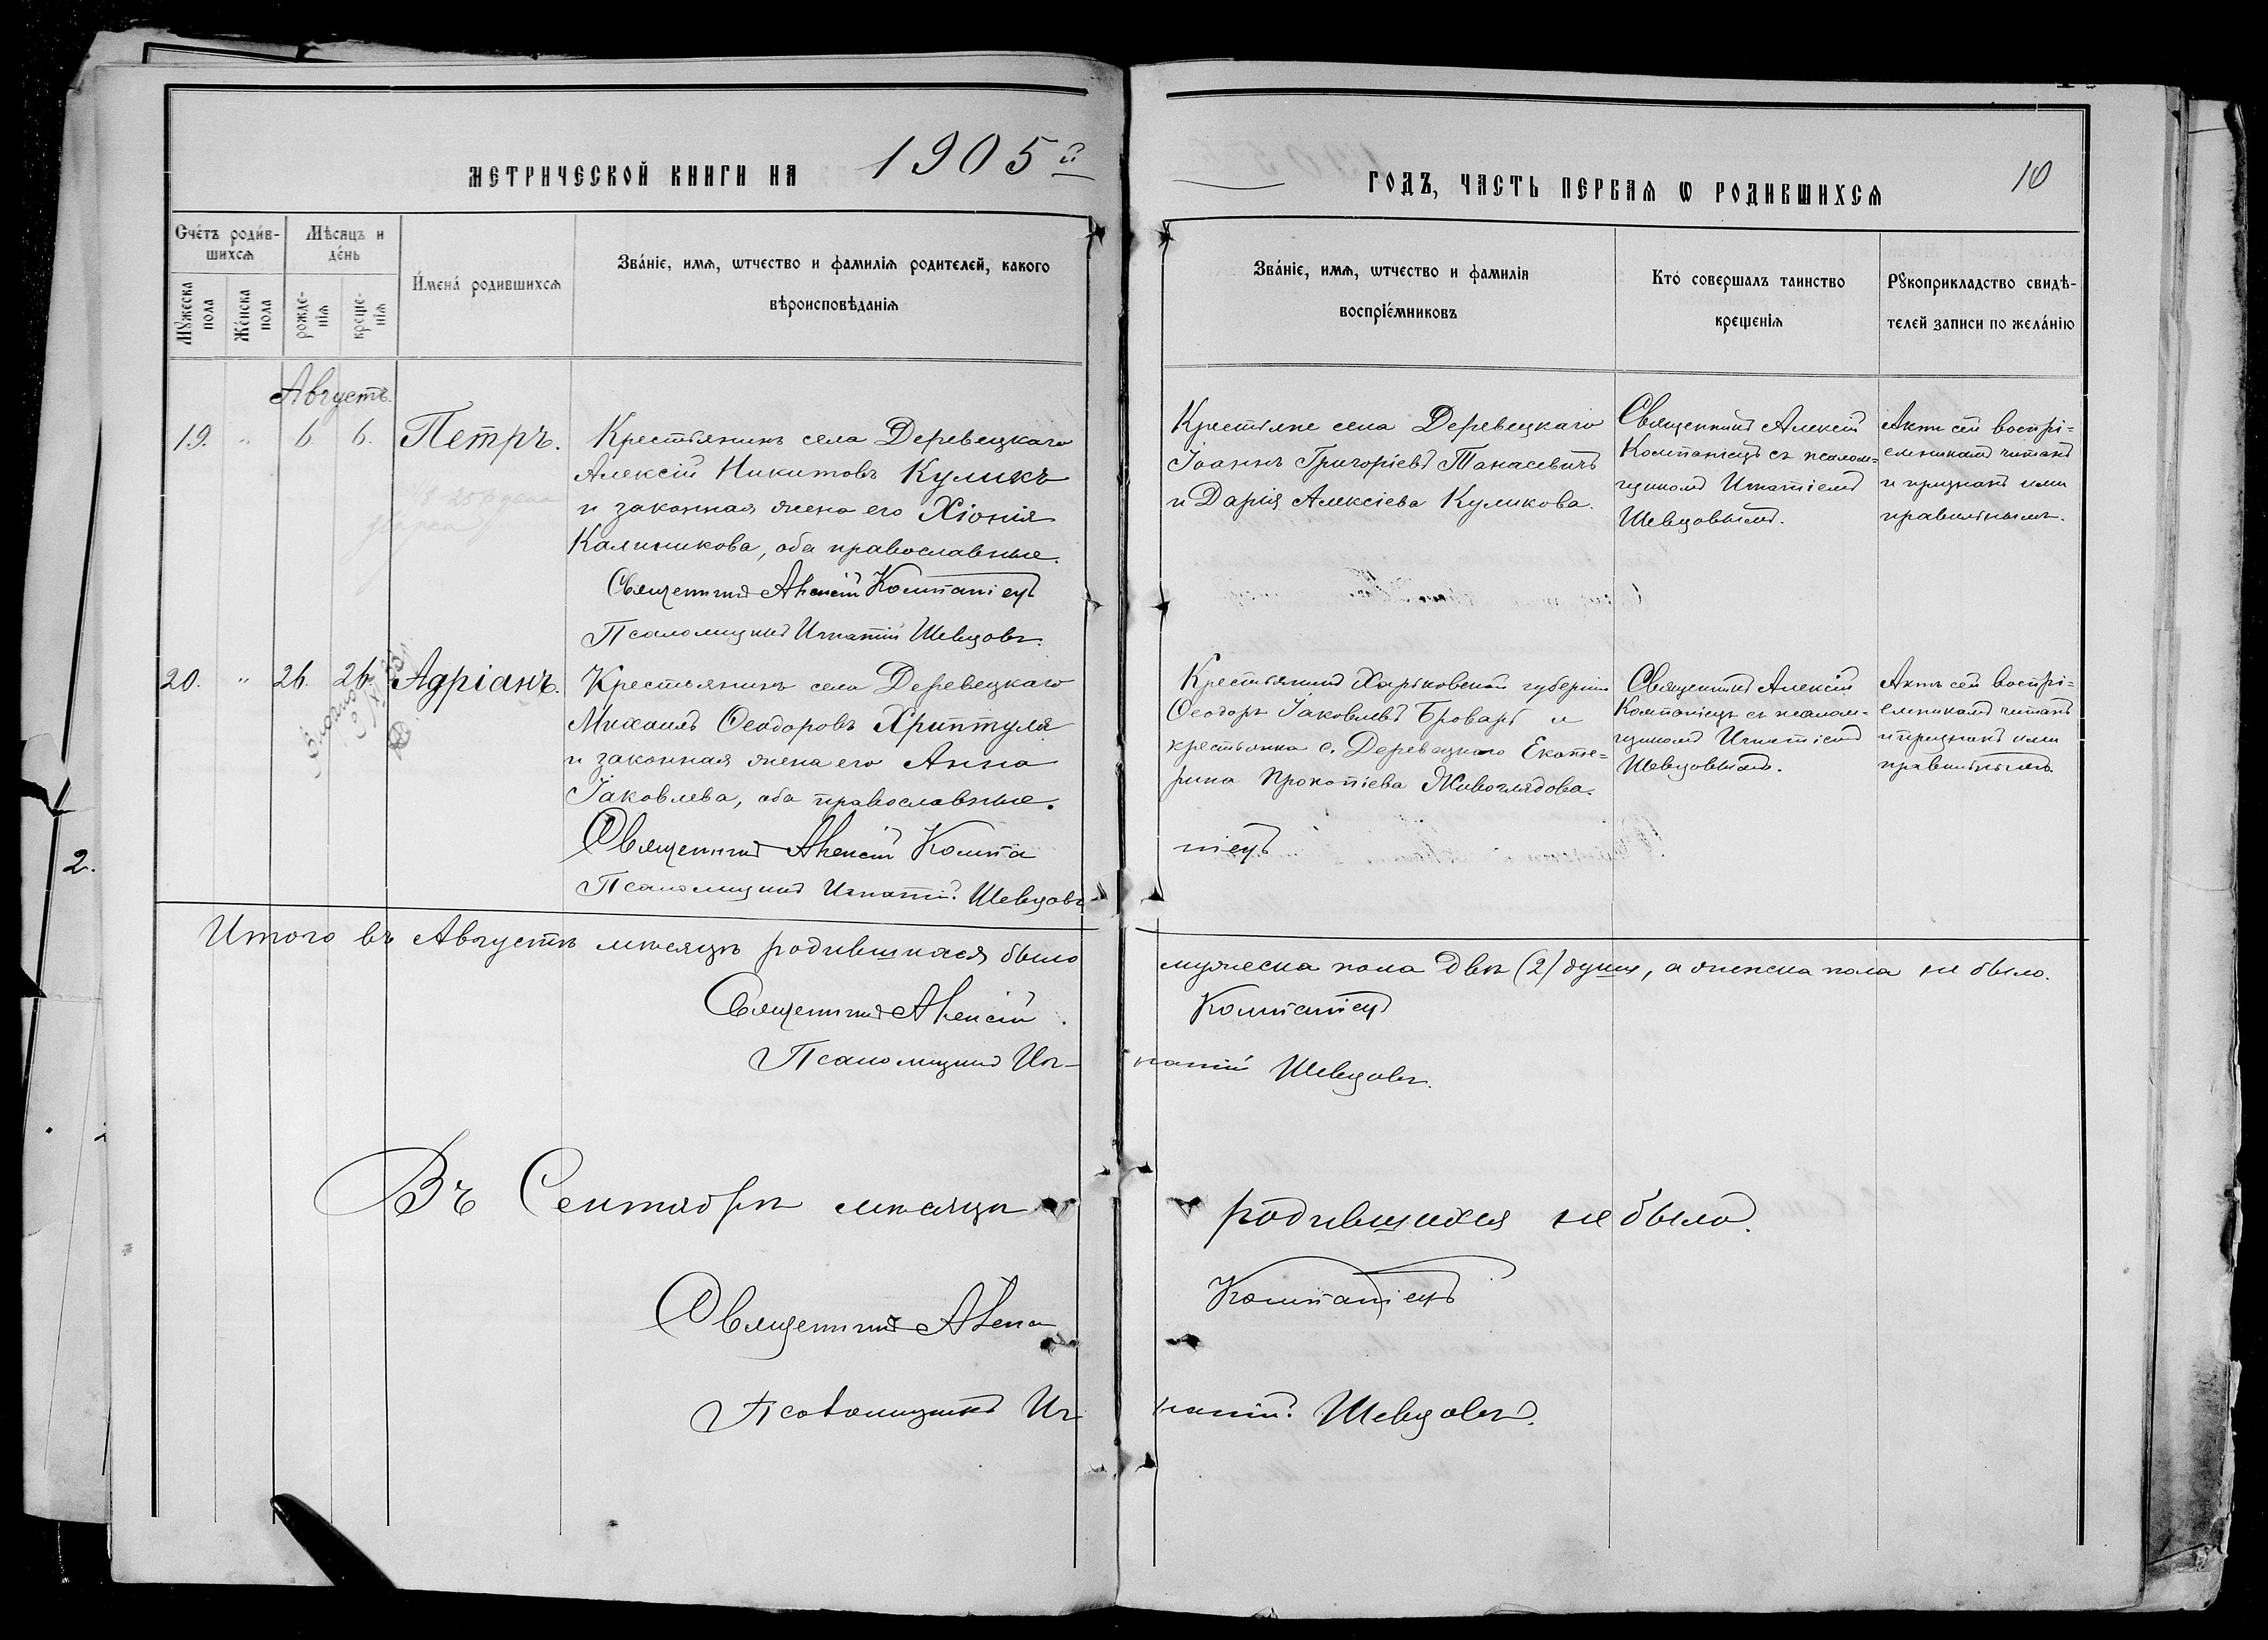 МЕТРИЧЕСКОЙ КНИГИ НА 1905й
ГОДЪ, ЧАСТЬ ПЕРВАѦ Ѡ РОДИВШИХСѦ
10
Счéтъ роди́в-
шихсѧ
Мꙋ́жеска пола
Же́нска пола
Мѣ́сѧцъ и
де́нь
рожде-
нїѧ
креще-
нїѧ
И́мена́ родившихсѧ
Зва́нїе, имѧ, ѿчество и фамилїѧ родителей, какого
вѣроисповѣданїѧ
Зва́нїе, имѧ, ѿчество и фамилїѧ
воспрїе́мниковъ
Кто́ совершалъ таинство
крещенїѧ
Рꙋкоприкладство свидѣ-
телей записи по жела́нїю
Августъ.
19. " 6. 6. Петръ.
Крестьянинъ села Деревецкаго
Алексій Никитовъ Куликъ
и законная жена его Хіонія
Калиникова, оба православные.
Священникъ Алексій Компаніецъ
Псаломщикъ Игнатій Шевцовъ.
Крестьяне села Деревецкаго
Іоаннъ Григоріевъ Танасевичъ
и Дарія Алексіева Куликова.
Священникъ Алексій
Компаніецъ съ псалом=
щикомъ Игнатіемъ
Шевцовымъ.
Актъ сей воспрі=
емникамъ читанъ
и признанъ ими
правильнымъ.
20. " 26. 26. Адріанъ.
Крестьянинъ села Деревецкаго
Михаилъ Ѳеодоровъ Хриптуля
и законная жена его Анна
Іаковлева, оба православные.
Священникъ Алексій Компа
Псаломщикъ Игнатій Шевцовъ
Крестьянинъ Харьковской губерніи
Ѳеодоръ Іаковлевъ Броваръ и
крестьянка с. Деревецкаго Екате=
рина Прокопіева Живоглядова.
ніецъ
Священникъ Алексій
Компаніецъ съ псалом=
щикомъ Игнатіемъ
Шевцовымъ.
Актъ сей воспрі=
емникамъ читанъ
и признанъ ими
правильнымъ.
2.
Итого въ Августѣ мѣсяцѣ родившихся было
мужеска пола двѣ (2) души, а женска пола не было.
Священникъ Алексій Компаніецъ
Псаломщикъ Иг-
натій Шевцовъ.
Въ Сентябрѣ мѣсяцѣ родившихся не было.
Священникъ Алек Компаніецъ
Псаломщикъ Иг
натій Шевцовъ.